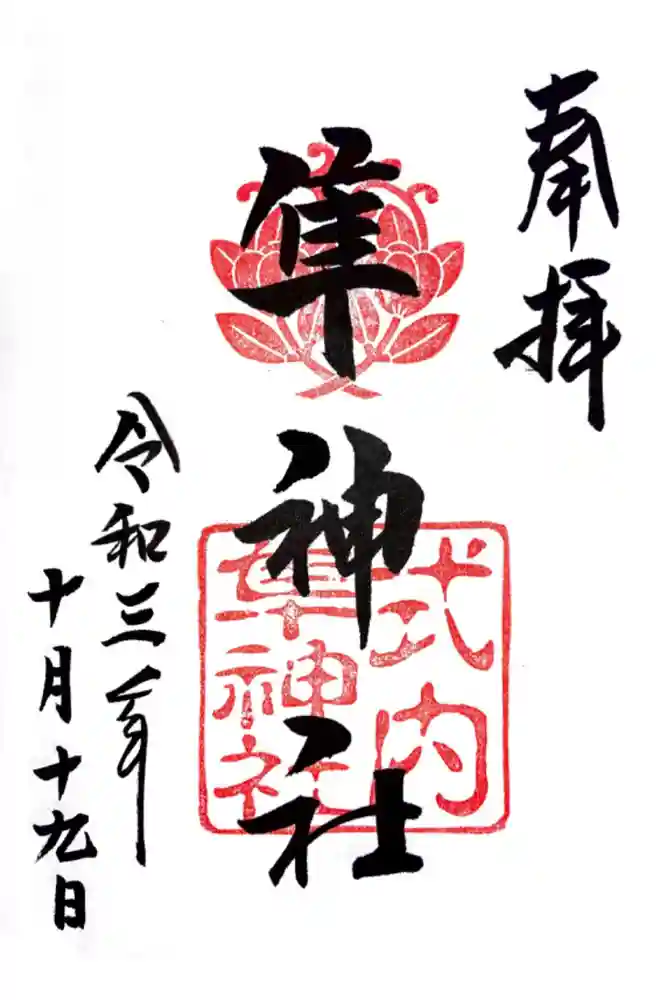 奉拝
隼神社
式内
隼神社
令和三年
十月十九日